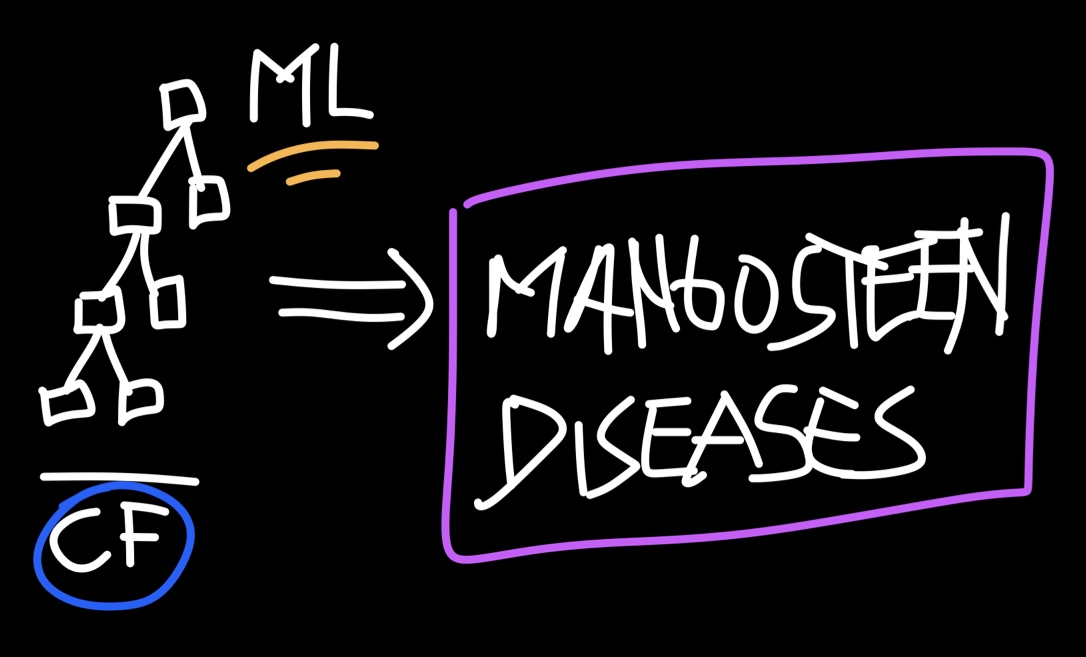 ML
MANGOSTEEN
DISEASES
CF